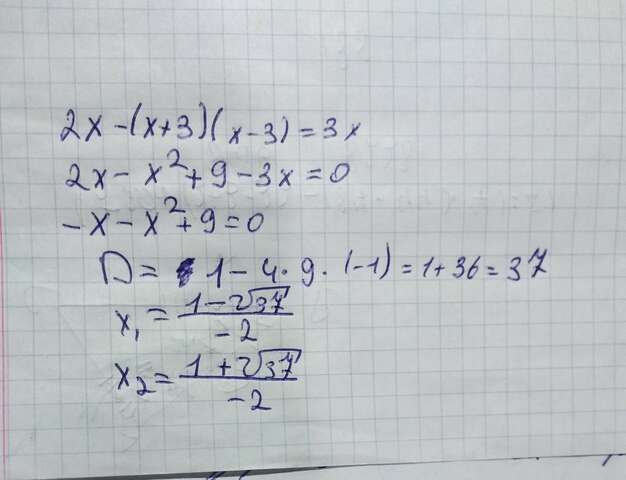 2x-(x+3)(x-3)=3x
2x-x²+9-3x=0
-x-x²+9=0
D=1-4·9·(-1)=1+36=37
x₁=(1-√37)/-2
x₂=(1+√37)/-2